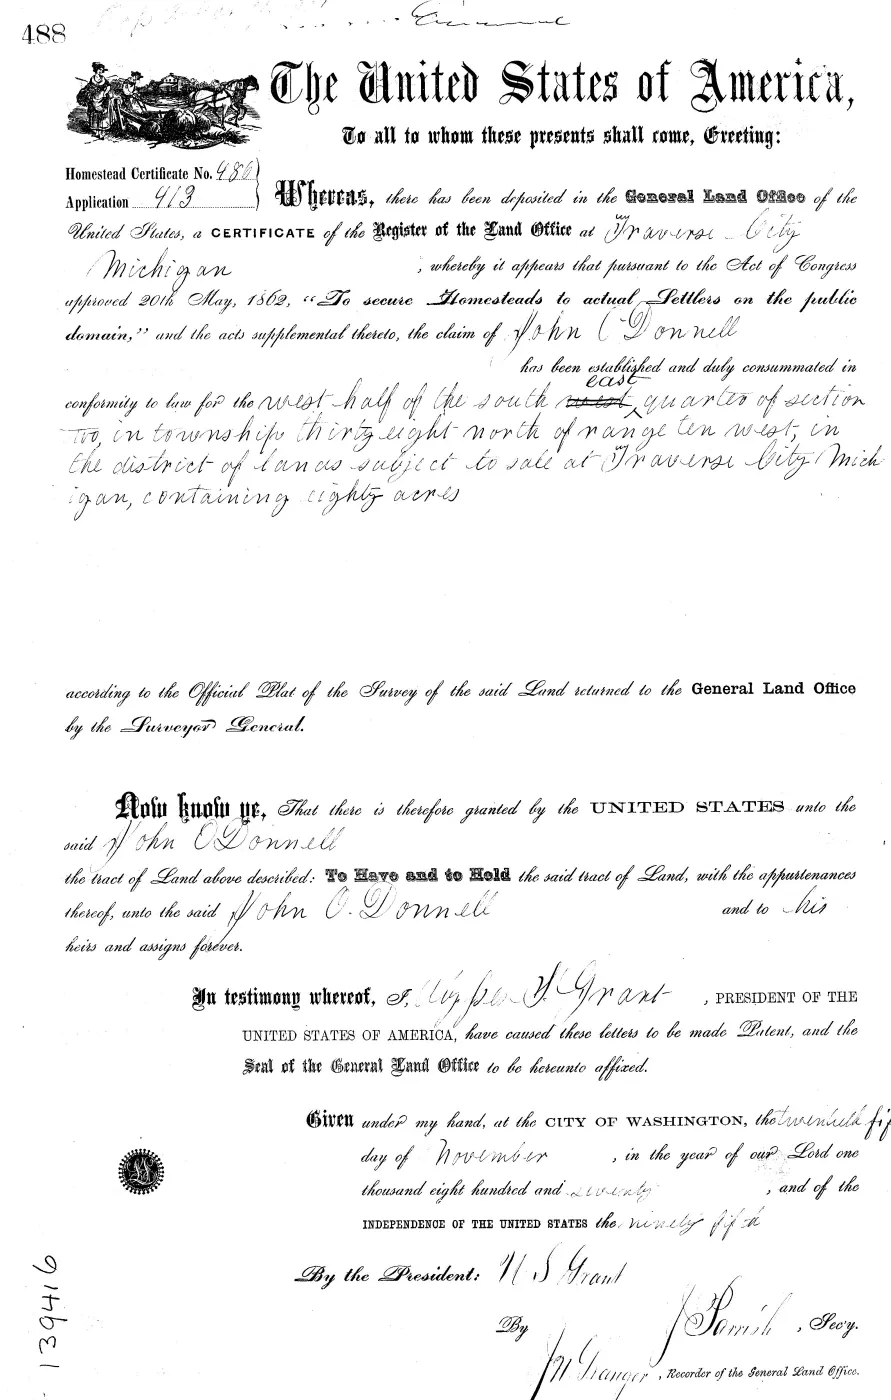 488
The United States of America,
To all to whom these presents shall come, Greeting:
Homestead Certificate No. 486
Application 413
Whereas, there has been deposited in the General Land Office of the
United States, a CERTIFICATE of the Register of the Land Office at Traverse City
Michigan , whereby it appears that pursuant to the Act of Congress
approved 20th May, 1862, "To secure Homesteads to actual Settlers on the public
domain," and the acts supplemental thereto, the claim of John O'Donnell
has been established and duly consummated in
east
conformity to law for the west half of the south west quarter of section
two, in township thirty eight north of range ten west, in
the district of lands subject to sale at Traverse City Mich
igan, containing eighty acres
according to the Official Plat of the Survey of the said Land returned to the General Land Office
by the Surveyor General.
Now know ye, That there is therefore granted by the UNITED STATES unto the
said John O Donnell
the tract of Land above described: To Have and to Hold the said tract of Land, with the appurtenances
thereof, unto the said John O. Donnell and to his
heirs and assigns forever.
In testimony whereof, I, Ulysses S. Grant , PRESIDENT OF THE
UNITED STATES OF AMERICA, have caused these letters to be made Patent, and the
Seal of the General Land Office to be hereunto affixed.
Given under my hand, at the CITY OF WASHINGTON, the
day of November , in the year of our Lord one
thousand eight hundred and seventy , and of the
INDEPENDENCE OF THE UNITED STATES the ninety fifth
By the President: U S Grant
By J Parrish , Secy.
J N Granger , Recorder of the General Land Office.
139416